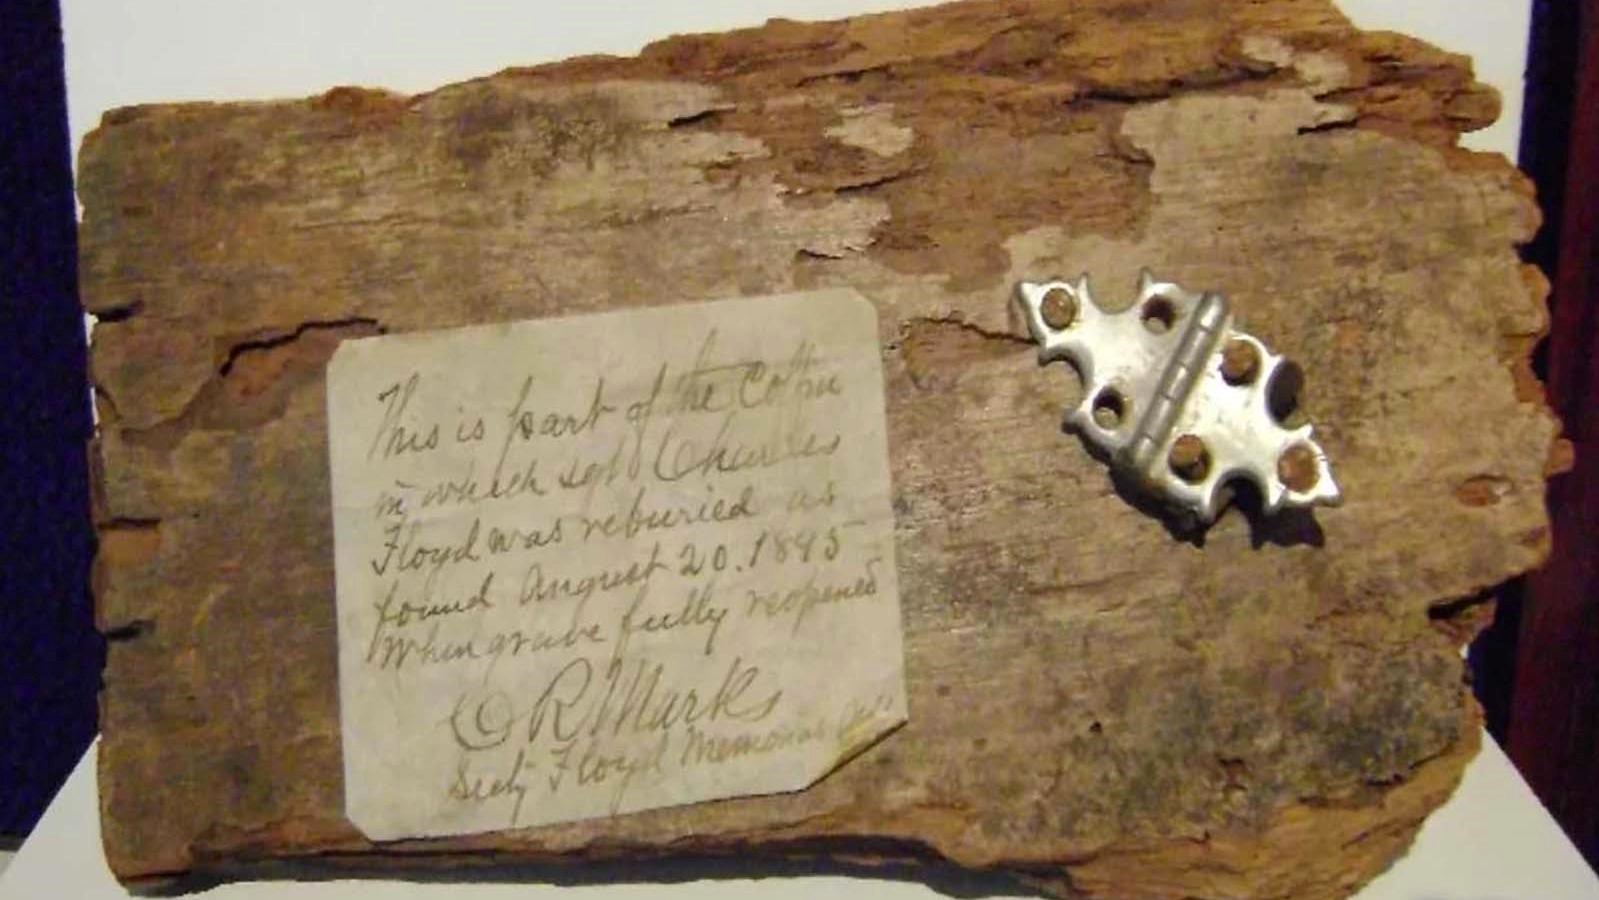 This is part of the Coffin
in which sgt Charles
Floyd was reburied as
found August 20. 1895
When grave fully reopened
C R Marks
Secty Floyd Memorial